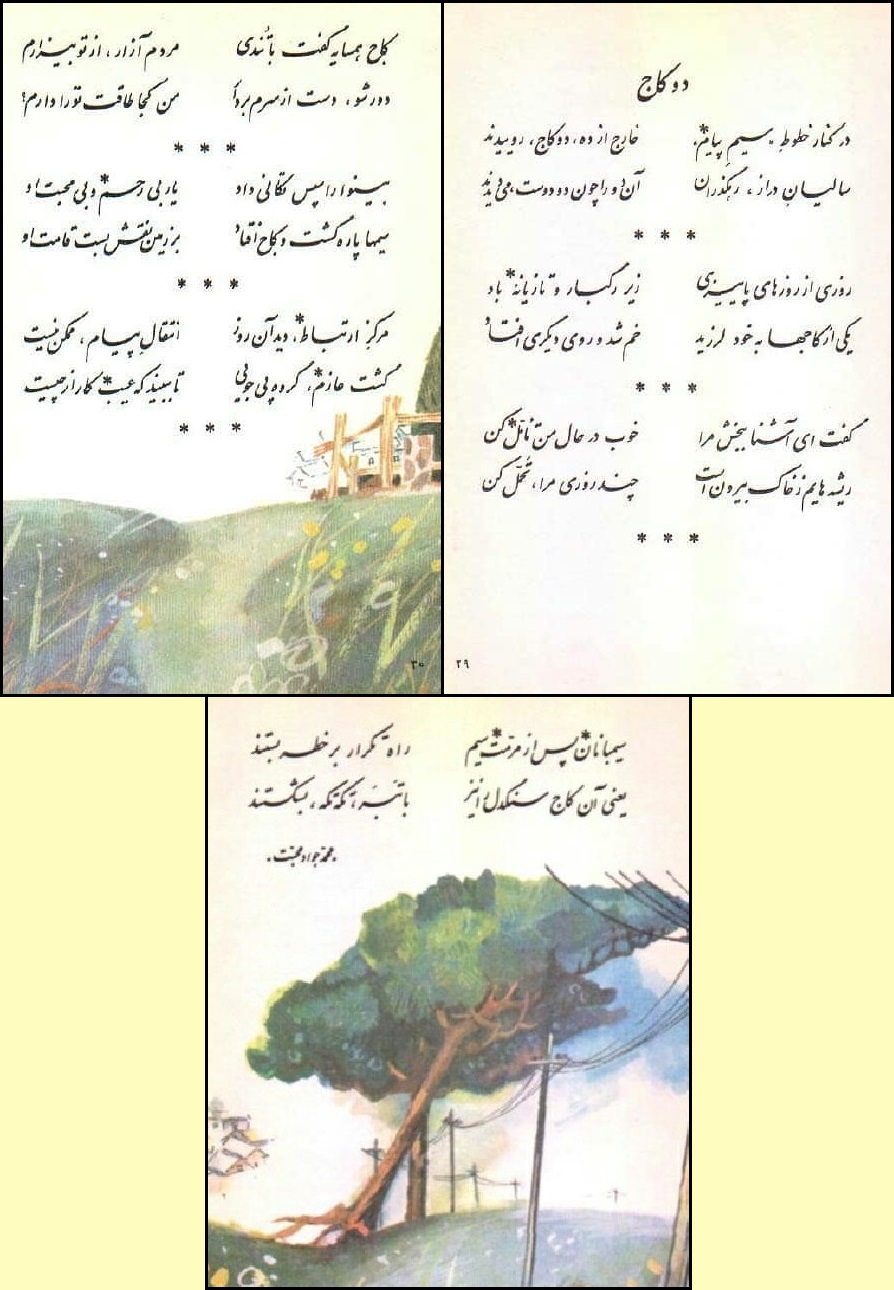 دو کاج
در کنار خطوط سیم پیام* خارج از ده، دو کاج، روییدند
سالیان دراز، رهگذران آن دو را چون دو دوست، می‌دیدند
* * *
روزی از روزهای پاییزی زیر رگبار و تازیانهٔ* باد
یکی از کاجها به خود لرزید خم شد و روی دیگری افتاد
* * *
گفت ای آشنا ببخش مرا خوب در حال من تأمّل* کن
ریشه هایم ز خاک بیرون است چند روزی مرا، تحمّل کن
* * *
۲۹
کاج همسایه گفت با تُندی مردم آزار، از تو بیزارم
دور شو، دست از سرم بردار من کجا طاقت تو را دارم؟
* * *
بینوا را سپس تکانی داد یار بی رحم* و بی محبت او
سیمها پاره گشت و کاج افتاد بر زمین نقش بست قامت او
* * *
مرکز ارتباط*، دید آن روز انتقال پیام، ممکن نیست
گشت عازم*، گروه پی جویی تا ببیند که عیب* کار از چیست
* * *
۳۰
سیمبانان* پس از مرمّت* سیم راه تکرار بر خطر بستند
یعنی آن کاج سنگدل را نیز با تَبَر، تکه تکه، بشکستند
.محمّد جواد محبّت.